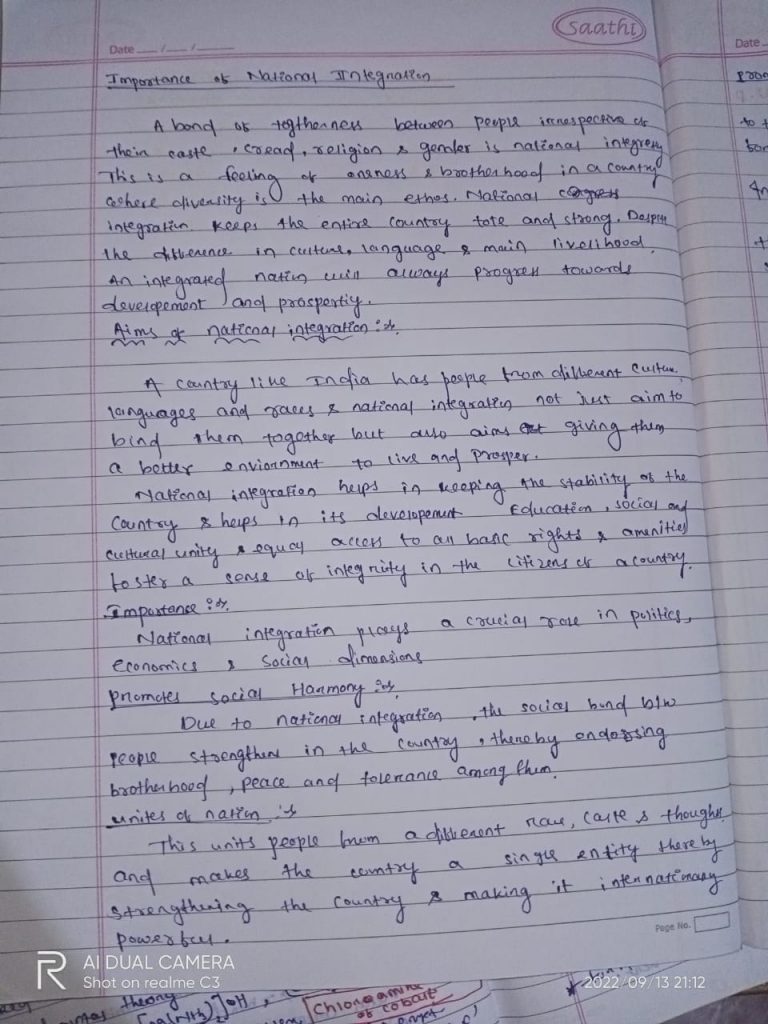 Saathi
Date __/__/__
Date
Importance of National Integration
A bond of togtherness between people irrespective of
their caste, cread, religion & gender is national integrety
This is a feeling of oneness & brotherhood in a country
where diversity is the main ethos. National
integration keeps the entire country tote and strong. Despite
the difference in culture, language & main livelihood.
An integrated nation will always progress towards
developement and prospertiy.
Aims of national integration :-
A country like India has people from different culture,
languages and races & national integration not just aim to
bind them together but also aims giving them
a better enviornment to live and prosper.
National integration helps in keeping the stability of the
country & helps in its developement Education, social and
cultural unity & equal access to all basic rights & amenities
foster a sense of integrity in the citizens of a country.
Importance :-
National integration plays a crucial role in politics,
economics & social dimensions
promotes social Harmony :-
Due to national integration, the social bond b/w
people strengthen in the country, thereby endorsing
brotherhood, peace and tolerance among them.
unites of nation :-
This units people from a different race, caste & thoughts
and makes the country a single entity thereby
strengthening the country & making it internationaly
powerful.
Page No.
AI DUAL CAMERA
Shot on realme C3
2022/09/13 21:12
theory
Chloroamine
of cobalt